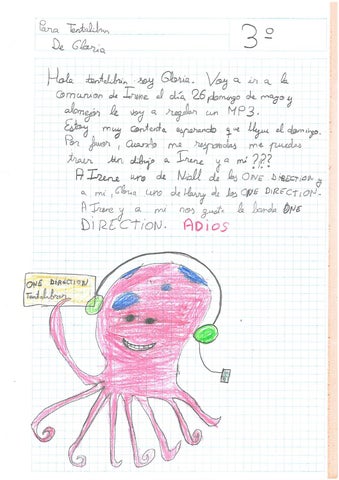 Para Tentalibrin
De Gloria
3º
Hola tentalibrin soy Gloria. Voy a ir a la
comunion de Irene el día 26 domingo de mayo y
alomejor le voy a regalar un MP3.
Estoy muy contenta esperando que llegue el domingo.
Por favor, Cuando me respondas me puedes
traer un dibujo a Irene y a mi ???
A Irene uno de Niall de los ONE DIRECTION y
a mi, Gloria uno de Harry de los ONE DIRECTION.
A Irene y a mi nos gusta la banda ONE
DIRECTION. ADIOS
ONE DIRECTION
Tentalibrin